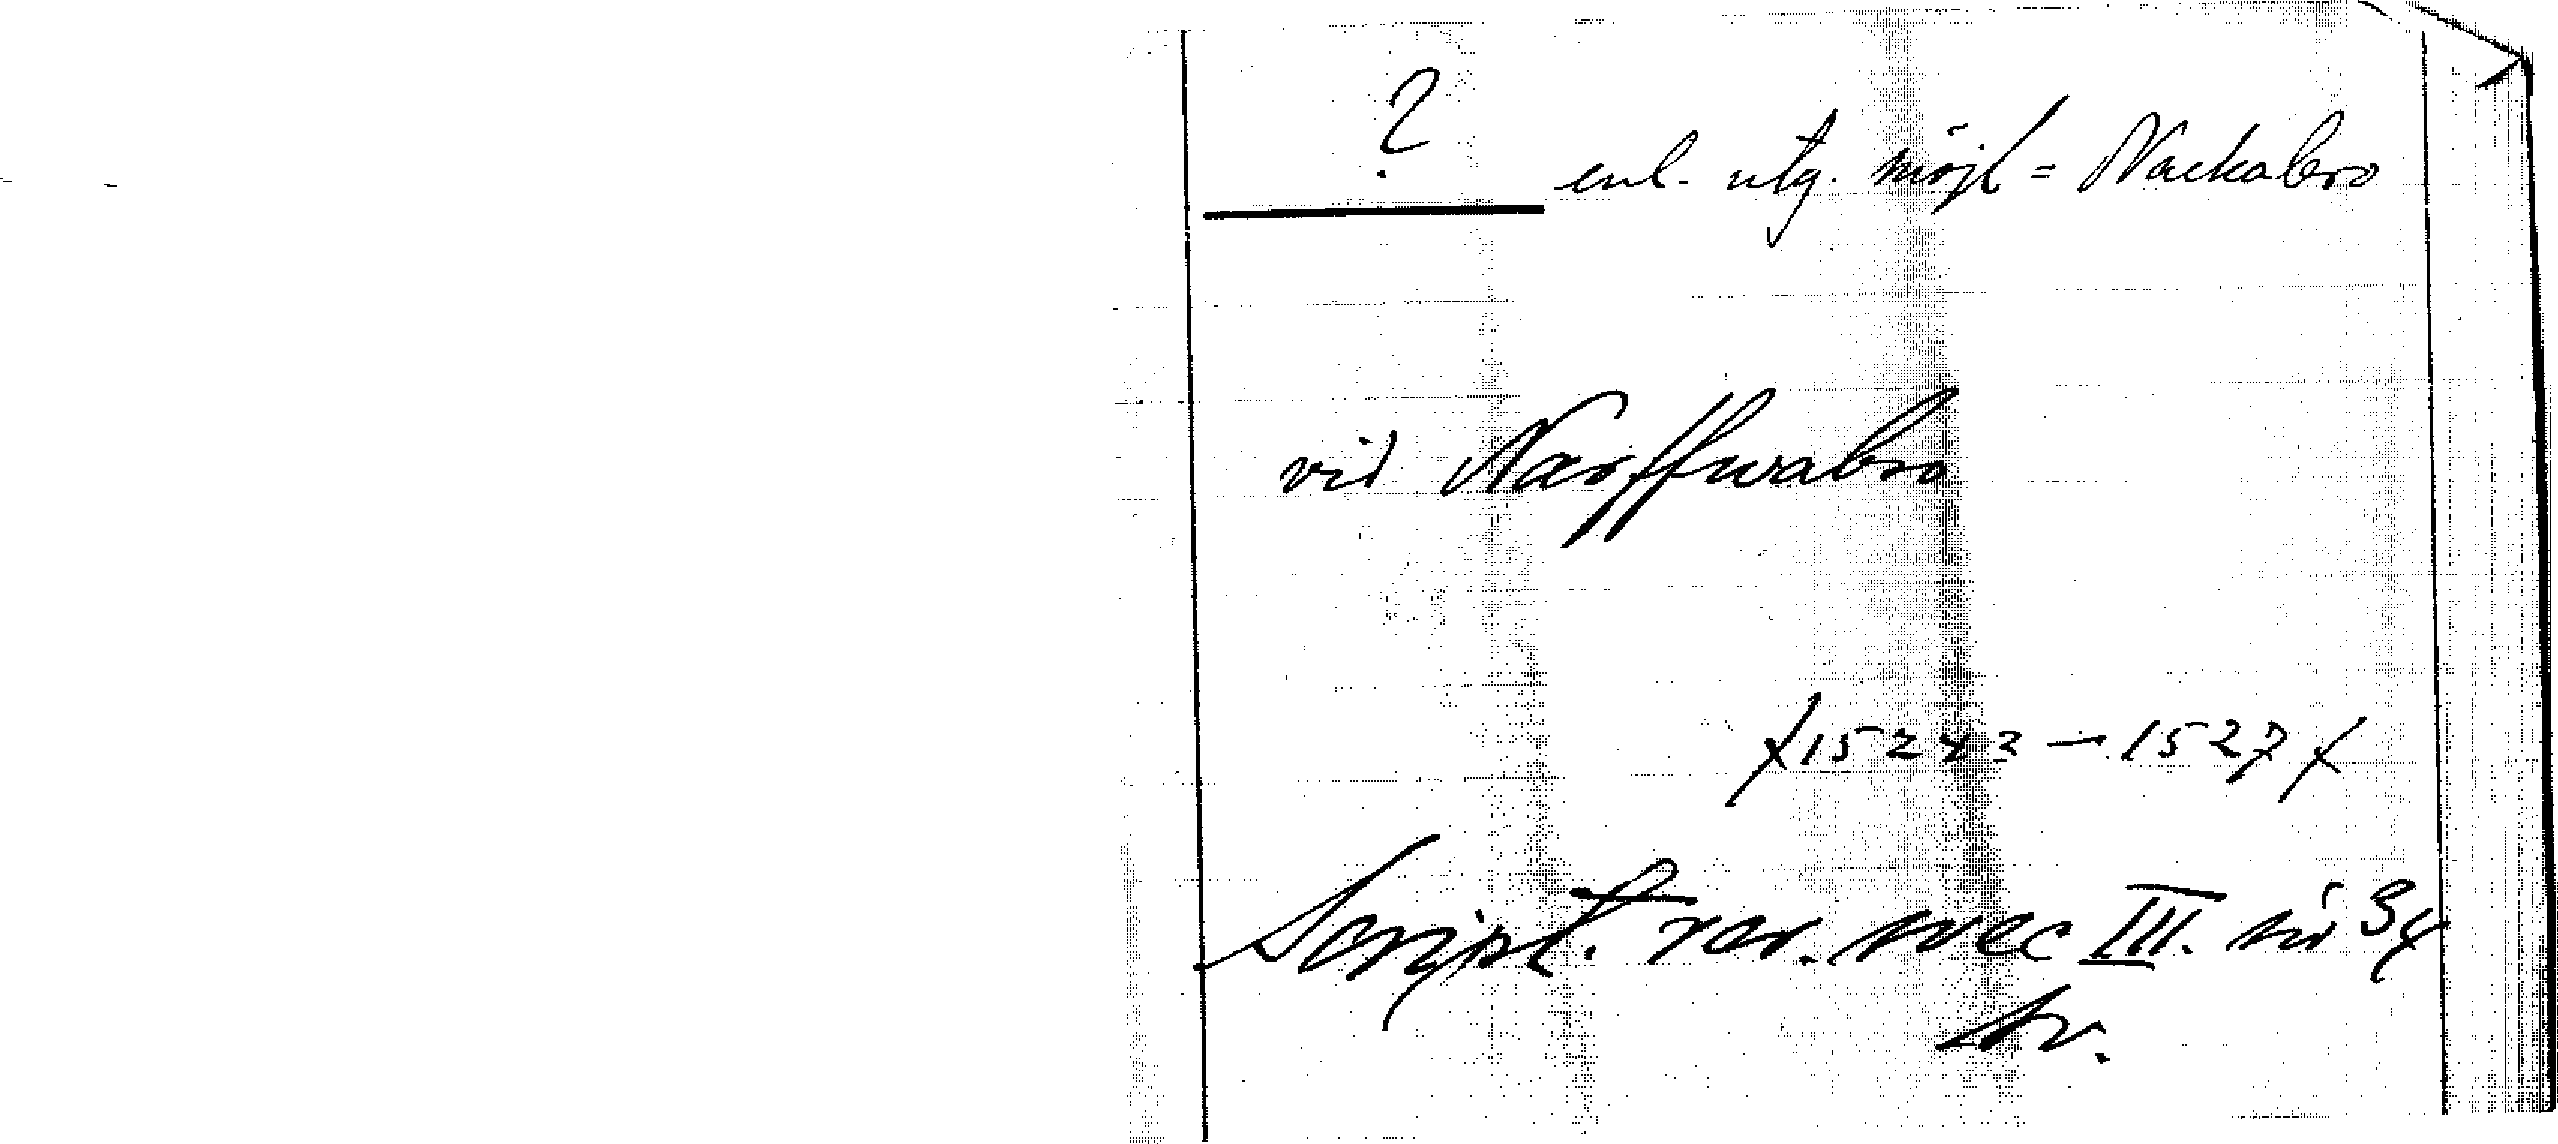 ?
enl. utg. möjl = Nackabro
vid Narffwabro
/1524 2 - 1527/
Script. rer. svec III. sid 34
Av.